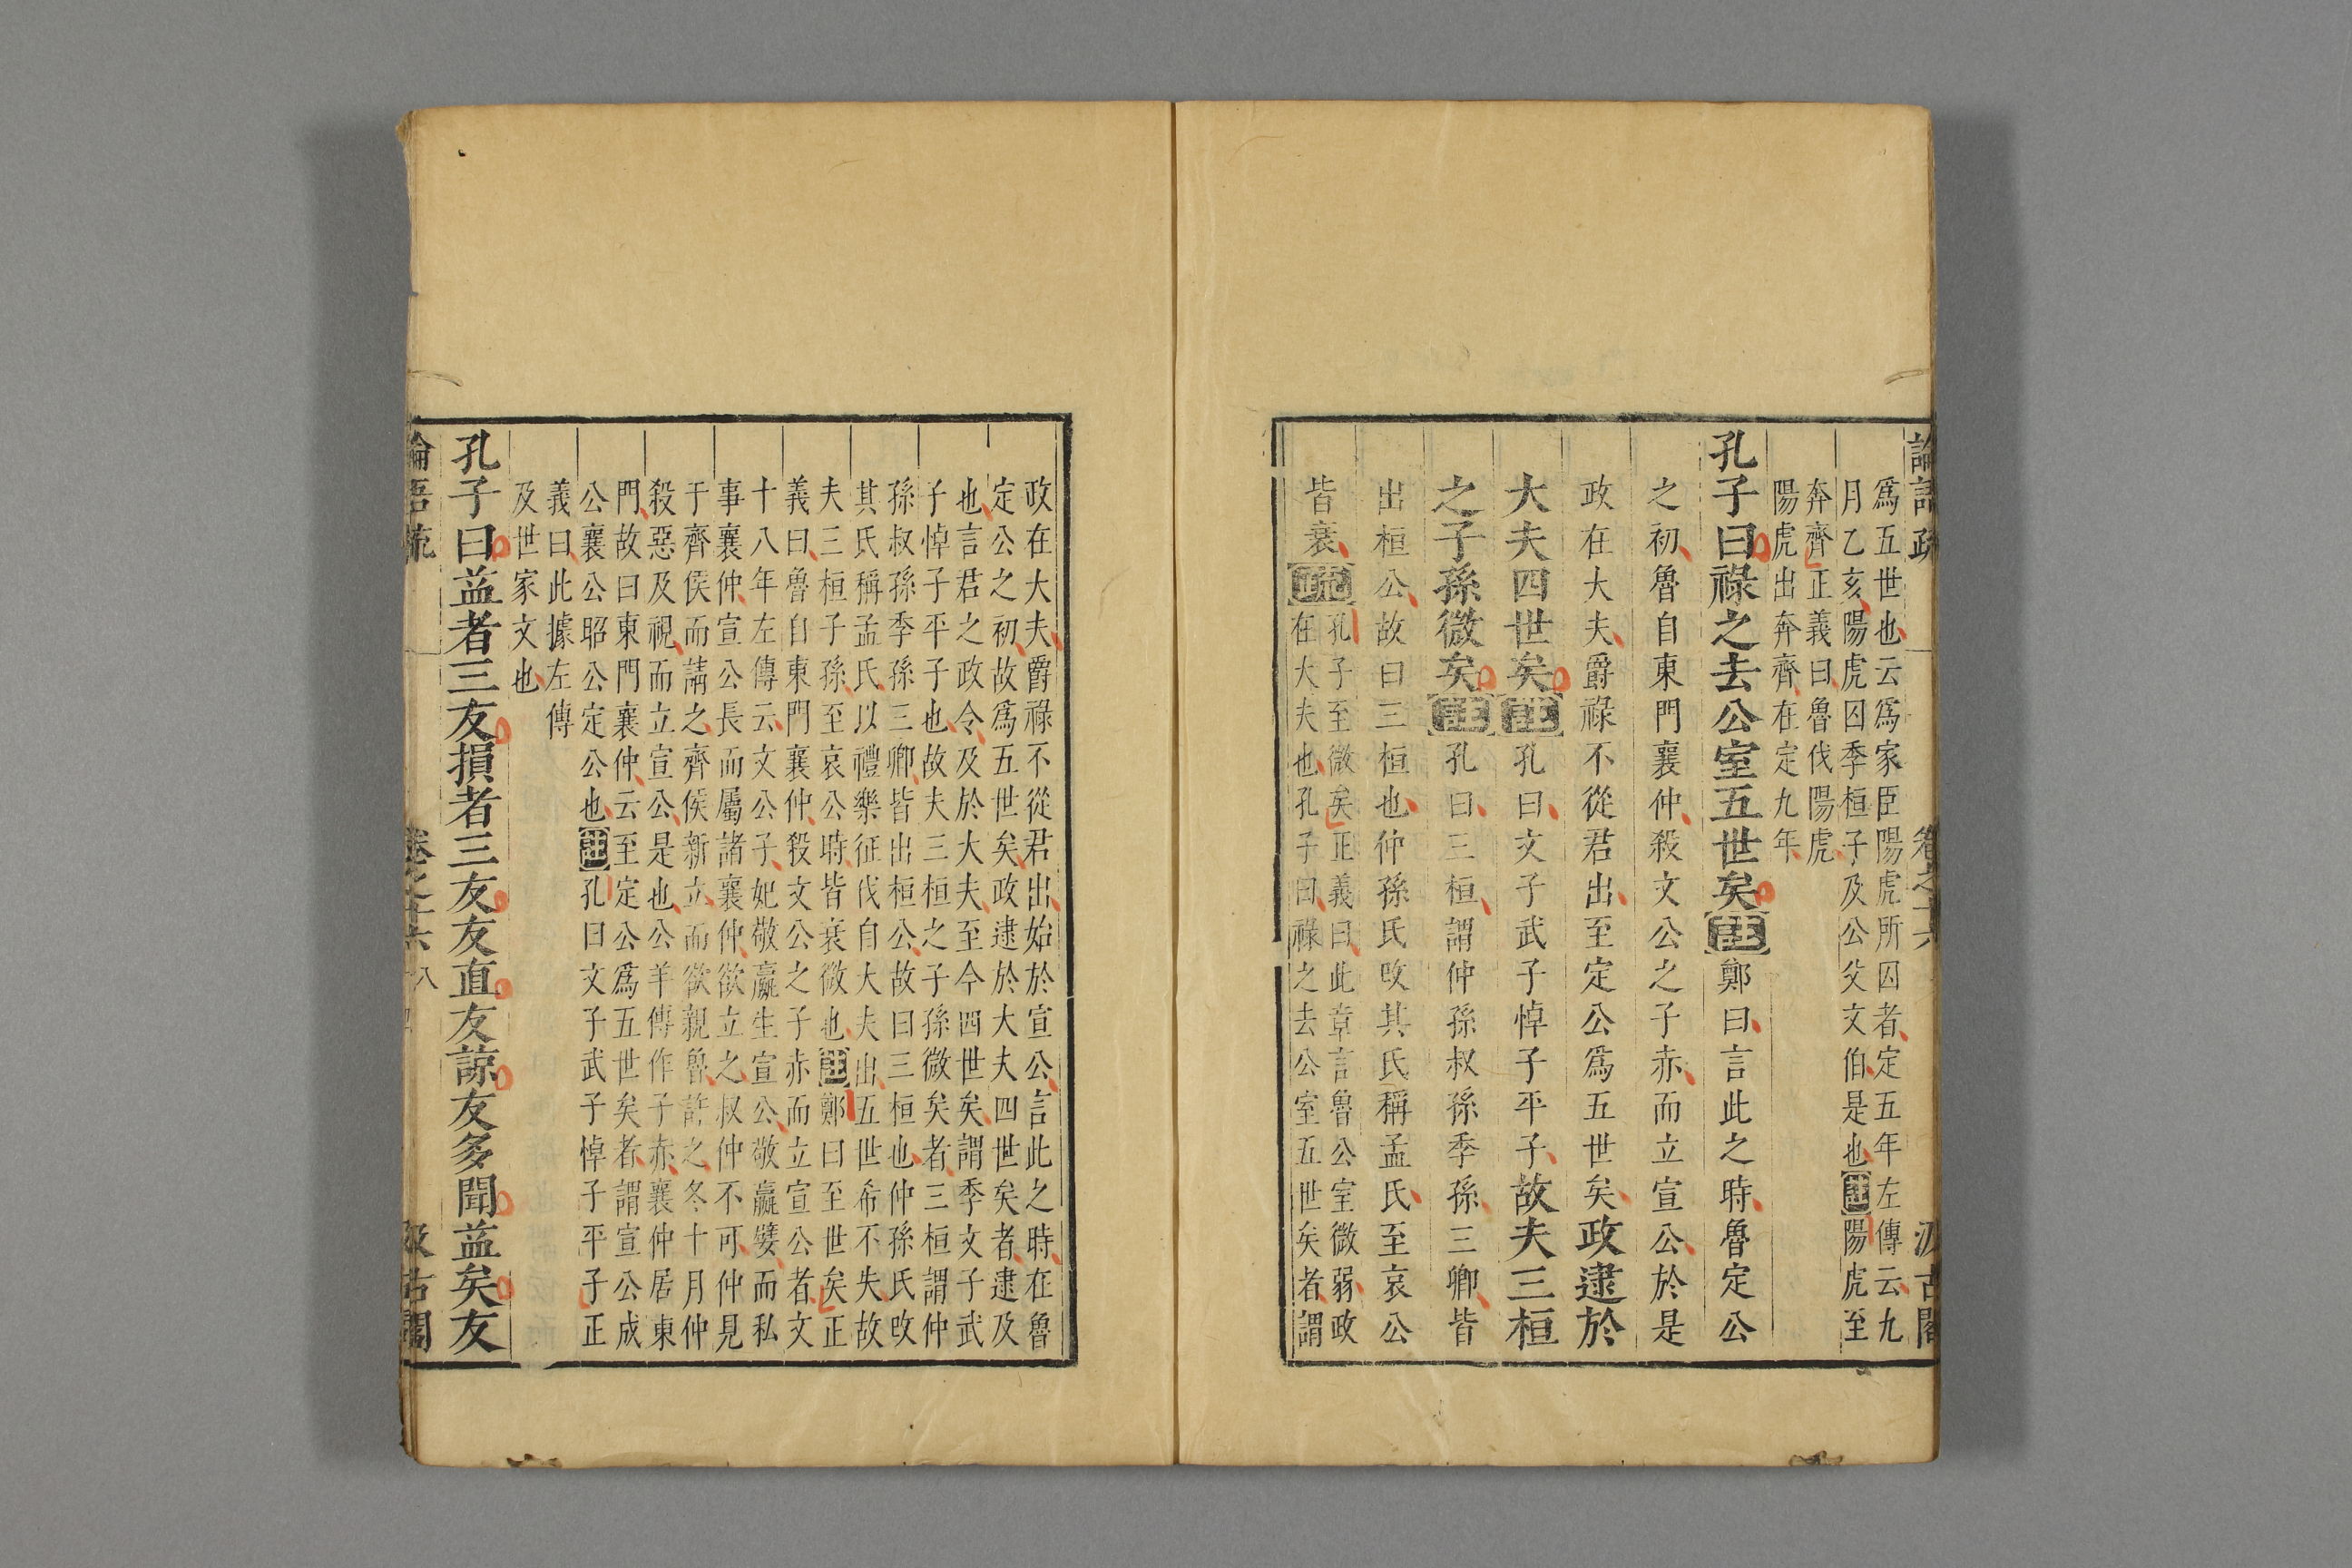 論語疏 卷之十六 汲古閣
爲五世也云爲家臣陽虎所囚者定五年左傳云九
月乙亥陽虎囚季桓子及公父文伯是也註陽虎至
奔齊正義曰魯伐陽虎
陽虎出奔齊在定九年
孔子曰祿之去公室五世矣註鄭曰言此之時魯定公
之初魯自東門襄仲殺文公之子赤而立宣公於是
政在大夫爵祿不從君出至定公爲五世矣政逮於
大夫四世矣註孔曰文子武子悼子平子故夫三桓
之子孫微矣註孔曰三桓謂仲孫叔孫季孫三卿皆
出桓公故曰三桓也仲孫氏改其氏稱孟氏至哀公
皆衰疏孔子至微矣正義曰此章言魯公室微弱政
在大夫也孔子曰祿之去公室五世矣者謂
政在大夫爵祿不從君出始於宣公言此之時在魯
定公之初故爲五世矣政逮於大夫四世矣者逮及
也言君之政令及於大夫至今四世矣謂季文子武
子悼子平子也故夫三桓之子孫微矣者三桓謂仲
孫叔孫季孫三卿皆出桓公故曰三桓也仲孫氏改
其氏稱孟氏以禮樂征伐自大夫出五世希不失故
夫三桓子孫至哀公時皆衰微也註鄭曰至世矣正
義曰魯自東門襄仲殺文公之子赤而立宣公者文
十八年左傳云文公子妃敬嬴生宣公敬嬴嬖而私
事襄仲宣公長而屬諸襄仲欲立之叔仲不可仲見
于齊侯而請之齊侯新立而欲親魯許之冬十月仲
殺惡及視而立宣公是也公羊傳作子赤襄仲居東
門故曰東門襄仲云至定公爲五世矣者謂宣公成
公襄公昭公定公也註孔曰文子武子悼子平子正
義曰此據左傳
及世家文也
孔子曰益者三友損者三友友直友諒友多聞益矣友
論語疏 卷之十六 八 汲古閣